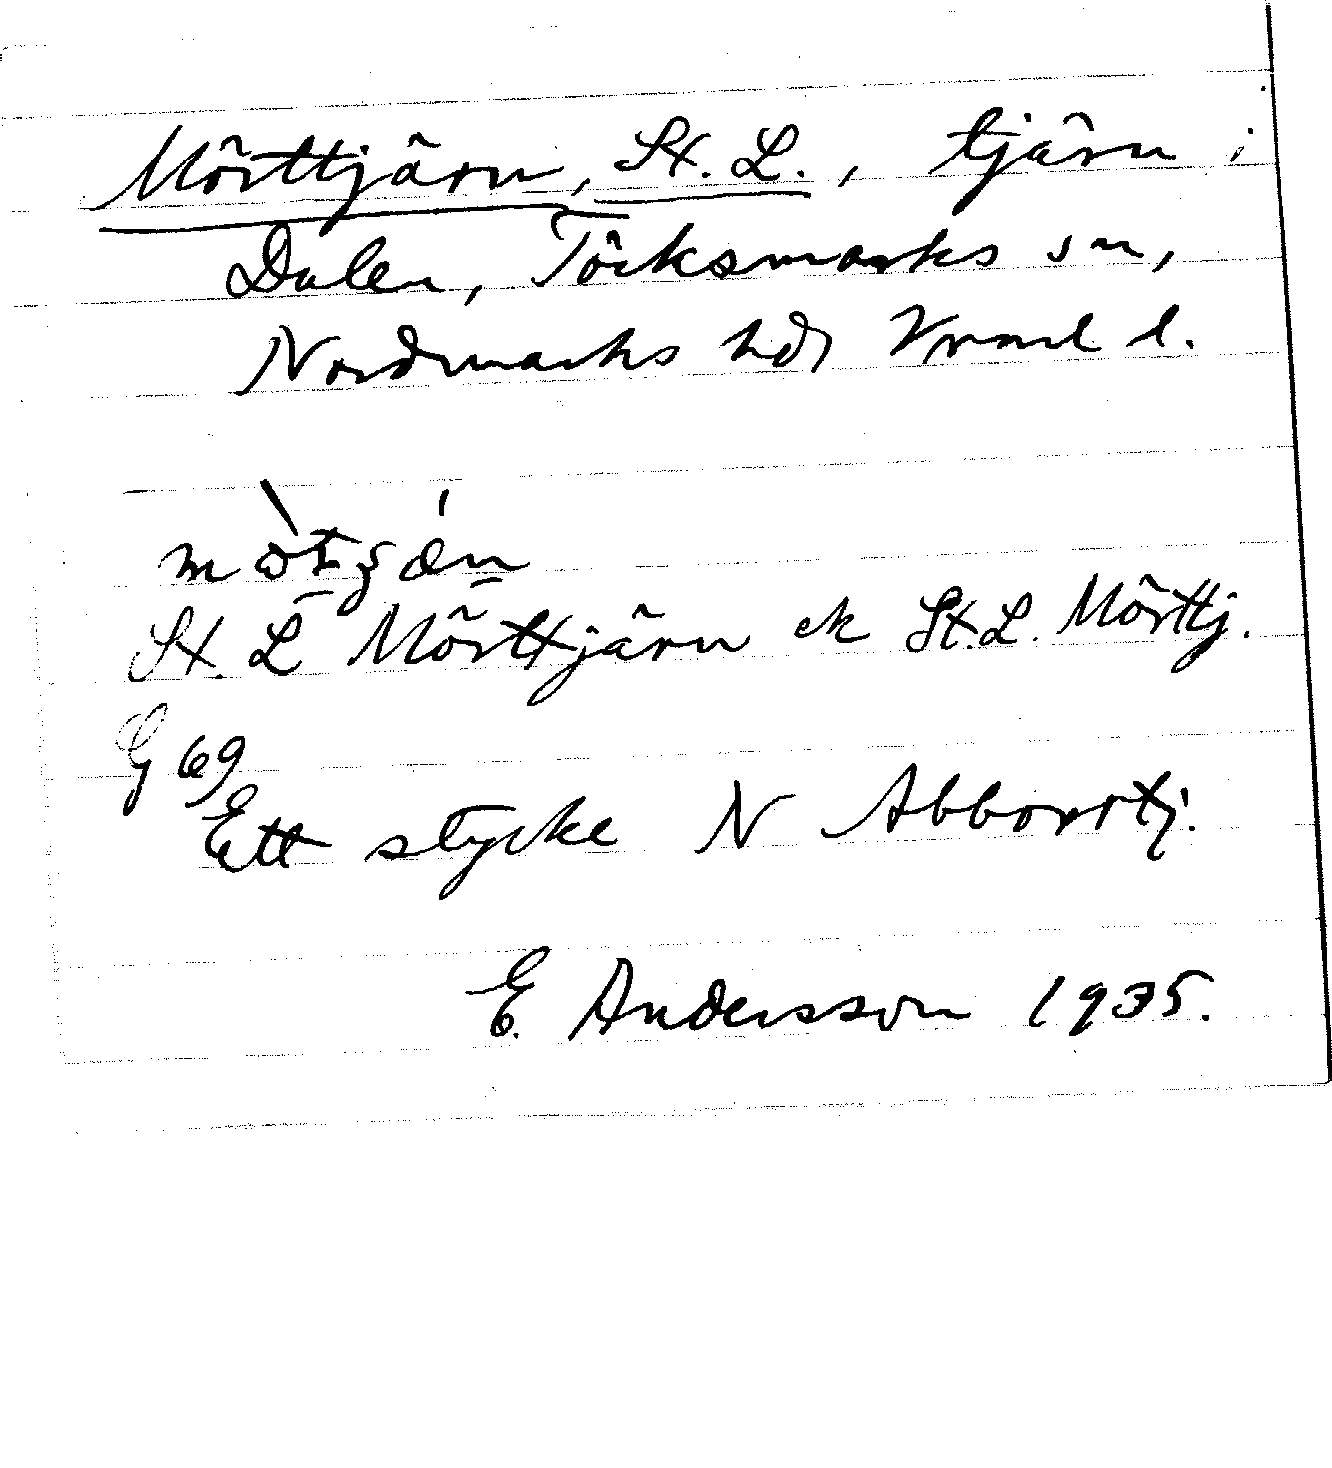 Mörttjärn, St. L., tjärn i
Dalen, Töcksmarks sn,
Nordmarks hd, Vrml l.
St. L Mörttjärn ek St. L. Mörttj.
G 69
Ett stycke N Abborrtj.
E. Andersson 1935.